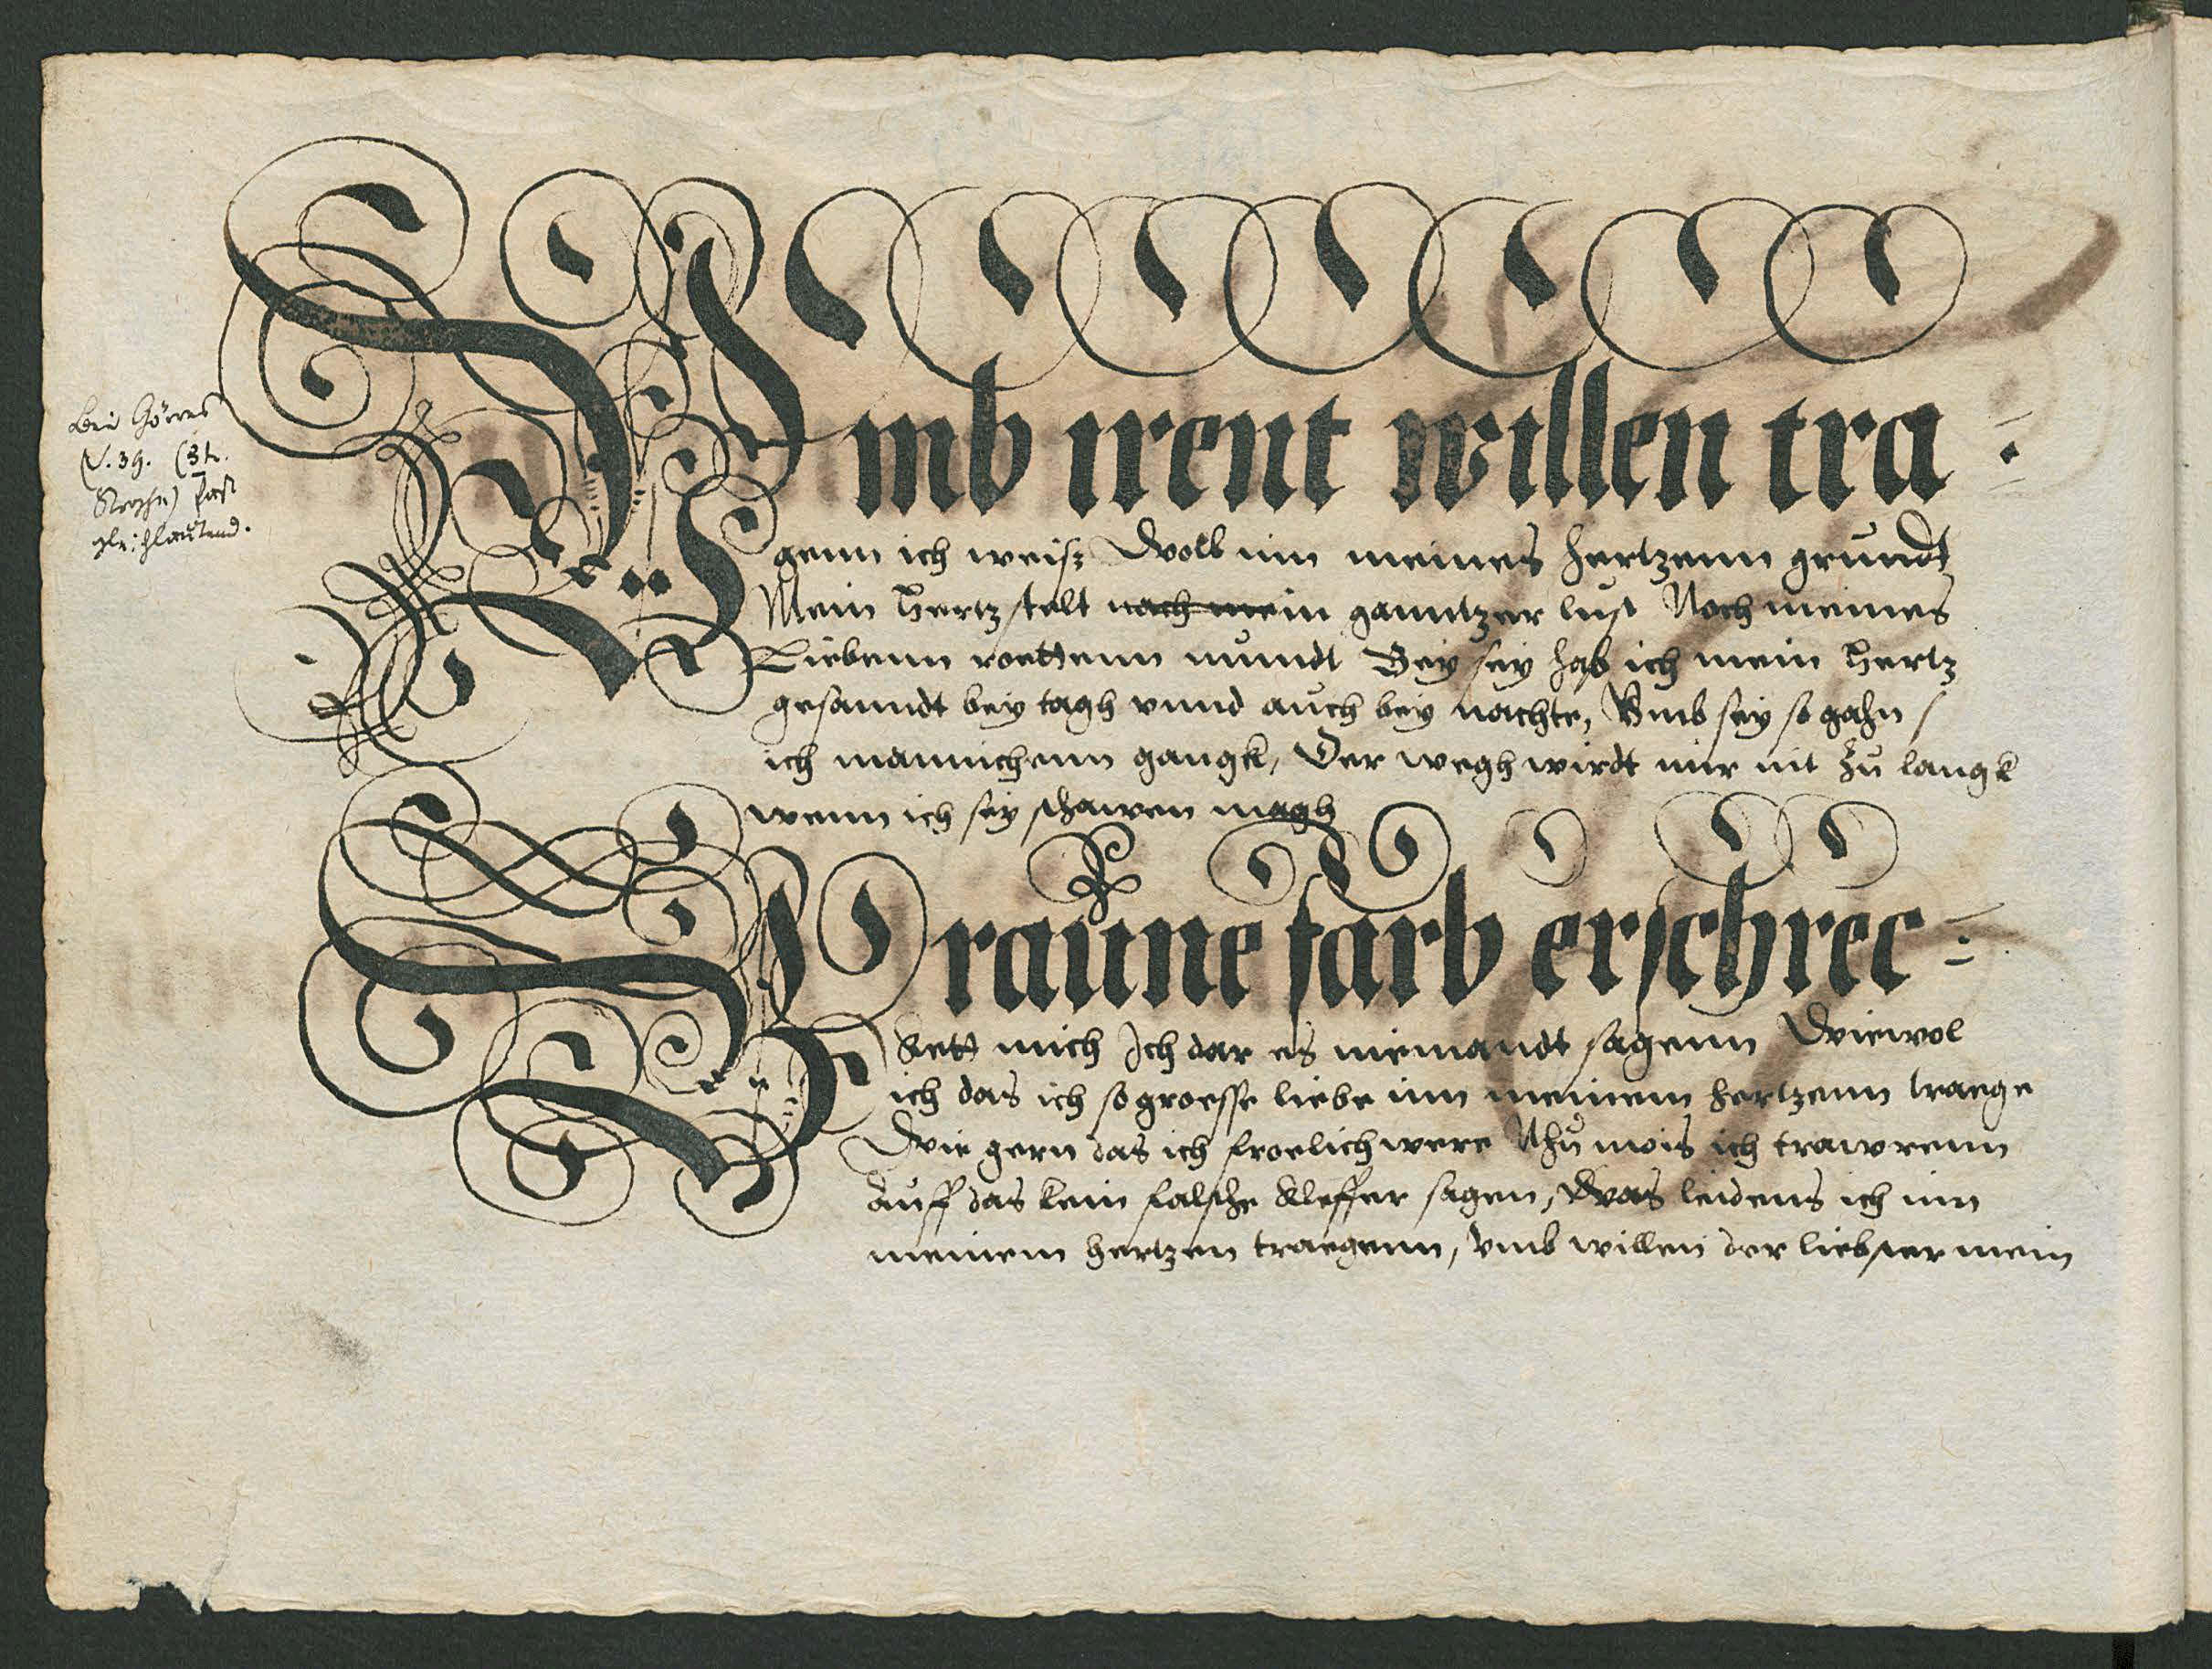 Bei Görres
S. 39. (3te
Strophe) fast
gleichlautend.
Vmb irent willen tra =
genn ich weiß Woll inn meines hertzenn grundt
Mein hertz stelt nach mein ganntzer lust Noch meines
Liebenn roettenn mundt Bey sey hab ich mein hertz
gesanndt bey tagh vnnd auch bey nachte, Vmb sey so gahn
ich mannichenn gangk, Der wegh wirdt mir nit zu langk
wenn ich sey schawen magh
Braune farb erschrec =
kett mich Ich dar es niemandt sagenn Wiewol
ich das ich so groesse liebe inn meinem hertzenn traege
Wie gern das ich froelich were Nhu mois ich trawrenn
Auff das kein falsche kleffer sagen, Was leidens ich inn
meinem hertzen traegenn, vmb willen der liebster mein